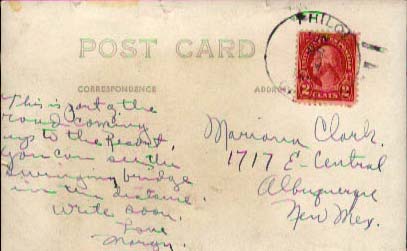 PHILO
POST CARD
CORRESPONDENCE
ADDRE
2 CENTS 2
This is part of the
road coming
up to the Resort.
You can see the
swinging bridge
in the distance.
Write soon.
Love
Margy.
Mariana Clark.
1717 E-Central
Albuquerque
New Mex.